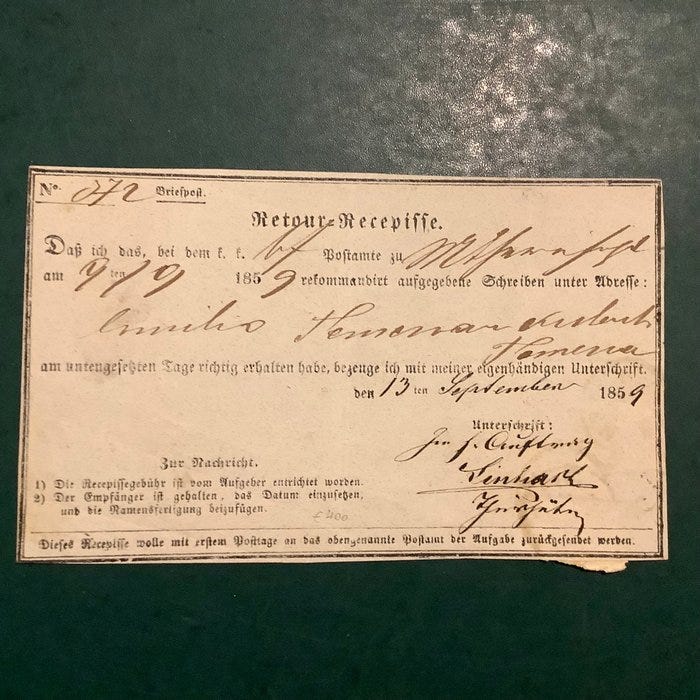 No. 872 Briefpost.
Retour-Recepisse.
Daß ich das, bei dem k. k. Postamte zu
am 7ten/9 1859 rekommandirt aufgegebene Schreiben unter Adresse:
Emilio
am untengesetzten Tage richtig erhalten habe, bezeuge ich mit meiner eigenhändigen Unterschrift.
den 13ten September 1859
Unterschrift:
Auftrag
Linhart
Zur Nachricht.
1) Die Recepissegebühr ist vom Aufgeber entrichtet worden.
2) Der Empfänger ist gehalten, das Datum einzusetzen,
und die Namensfertigung beizufügen.
£400
Dieses Recepisse wolle mit erstem Posttage an das obengenannte Postamt der Aufgabe zurückgesendet werden.